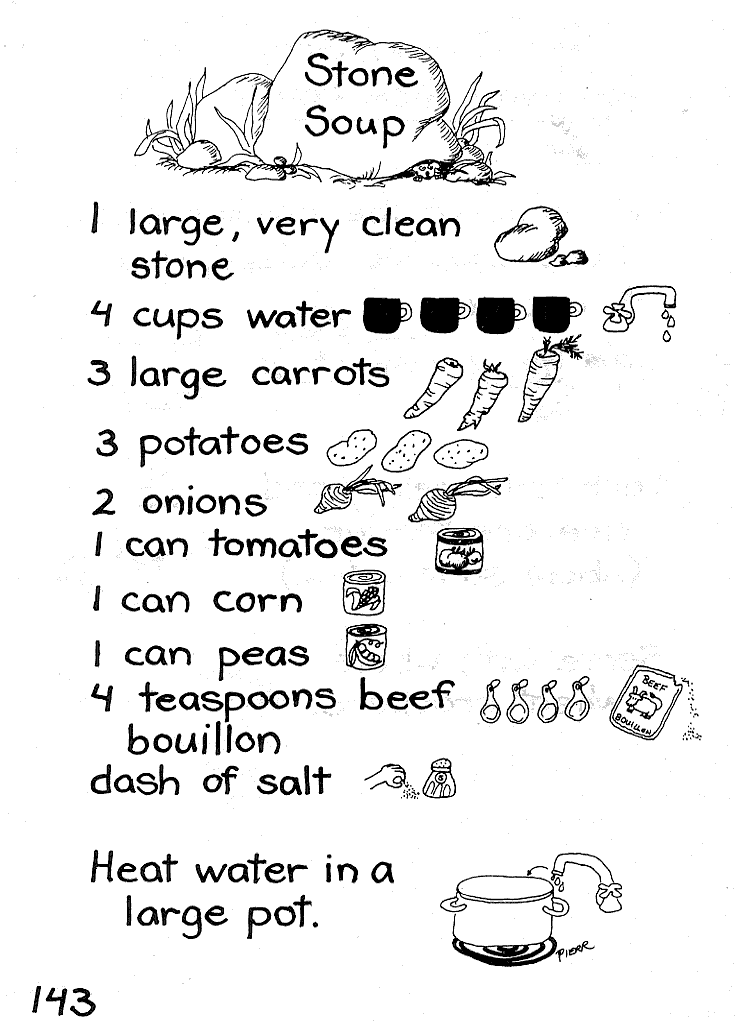 Stone
Soup
1 large, very clean
stone
4 cups water
3 large carrots
3 potatoes
2 onions
1 can tomatoes
1 can corn
1 can peas
4 teaspoons beef
bouillon
BEEF
BOUILLON
dash of salt
S
Heat water in a
large pot.
PIERR
143